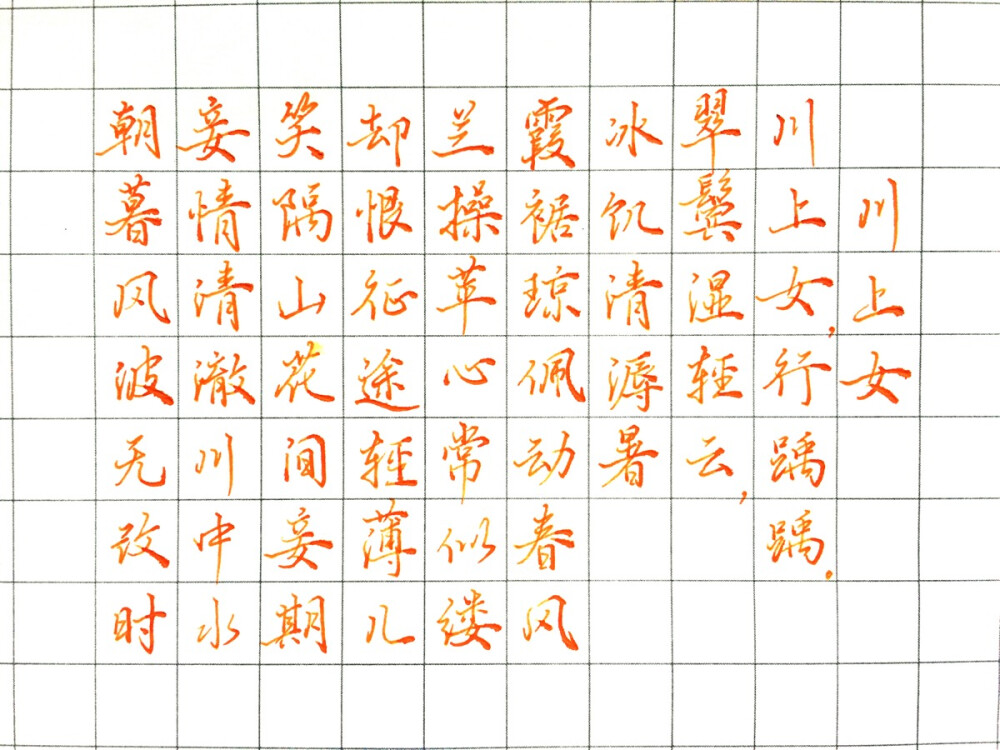 川上女
川上女,行踽踽。
翠鬓湿轻云,
冰饥清溽暑
霞裾琼佩动春风
兰操苹心常似缕
却恨征途轻薄儿
笑隔山花间妾期
妾情清澈川中水
朝暮风波无改时